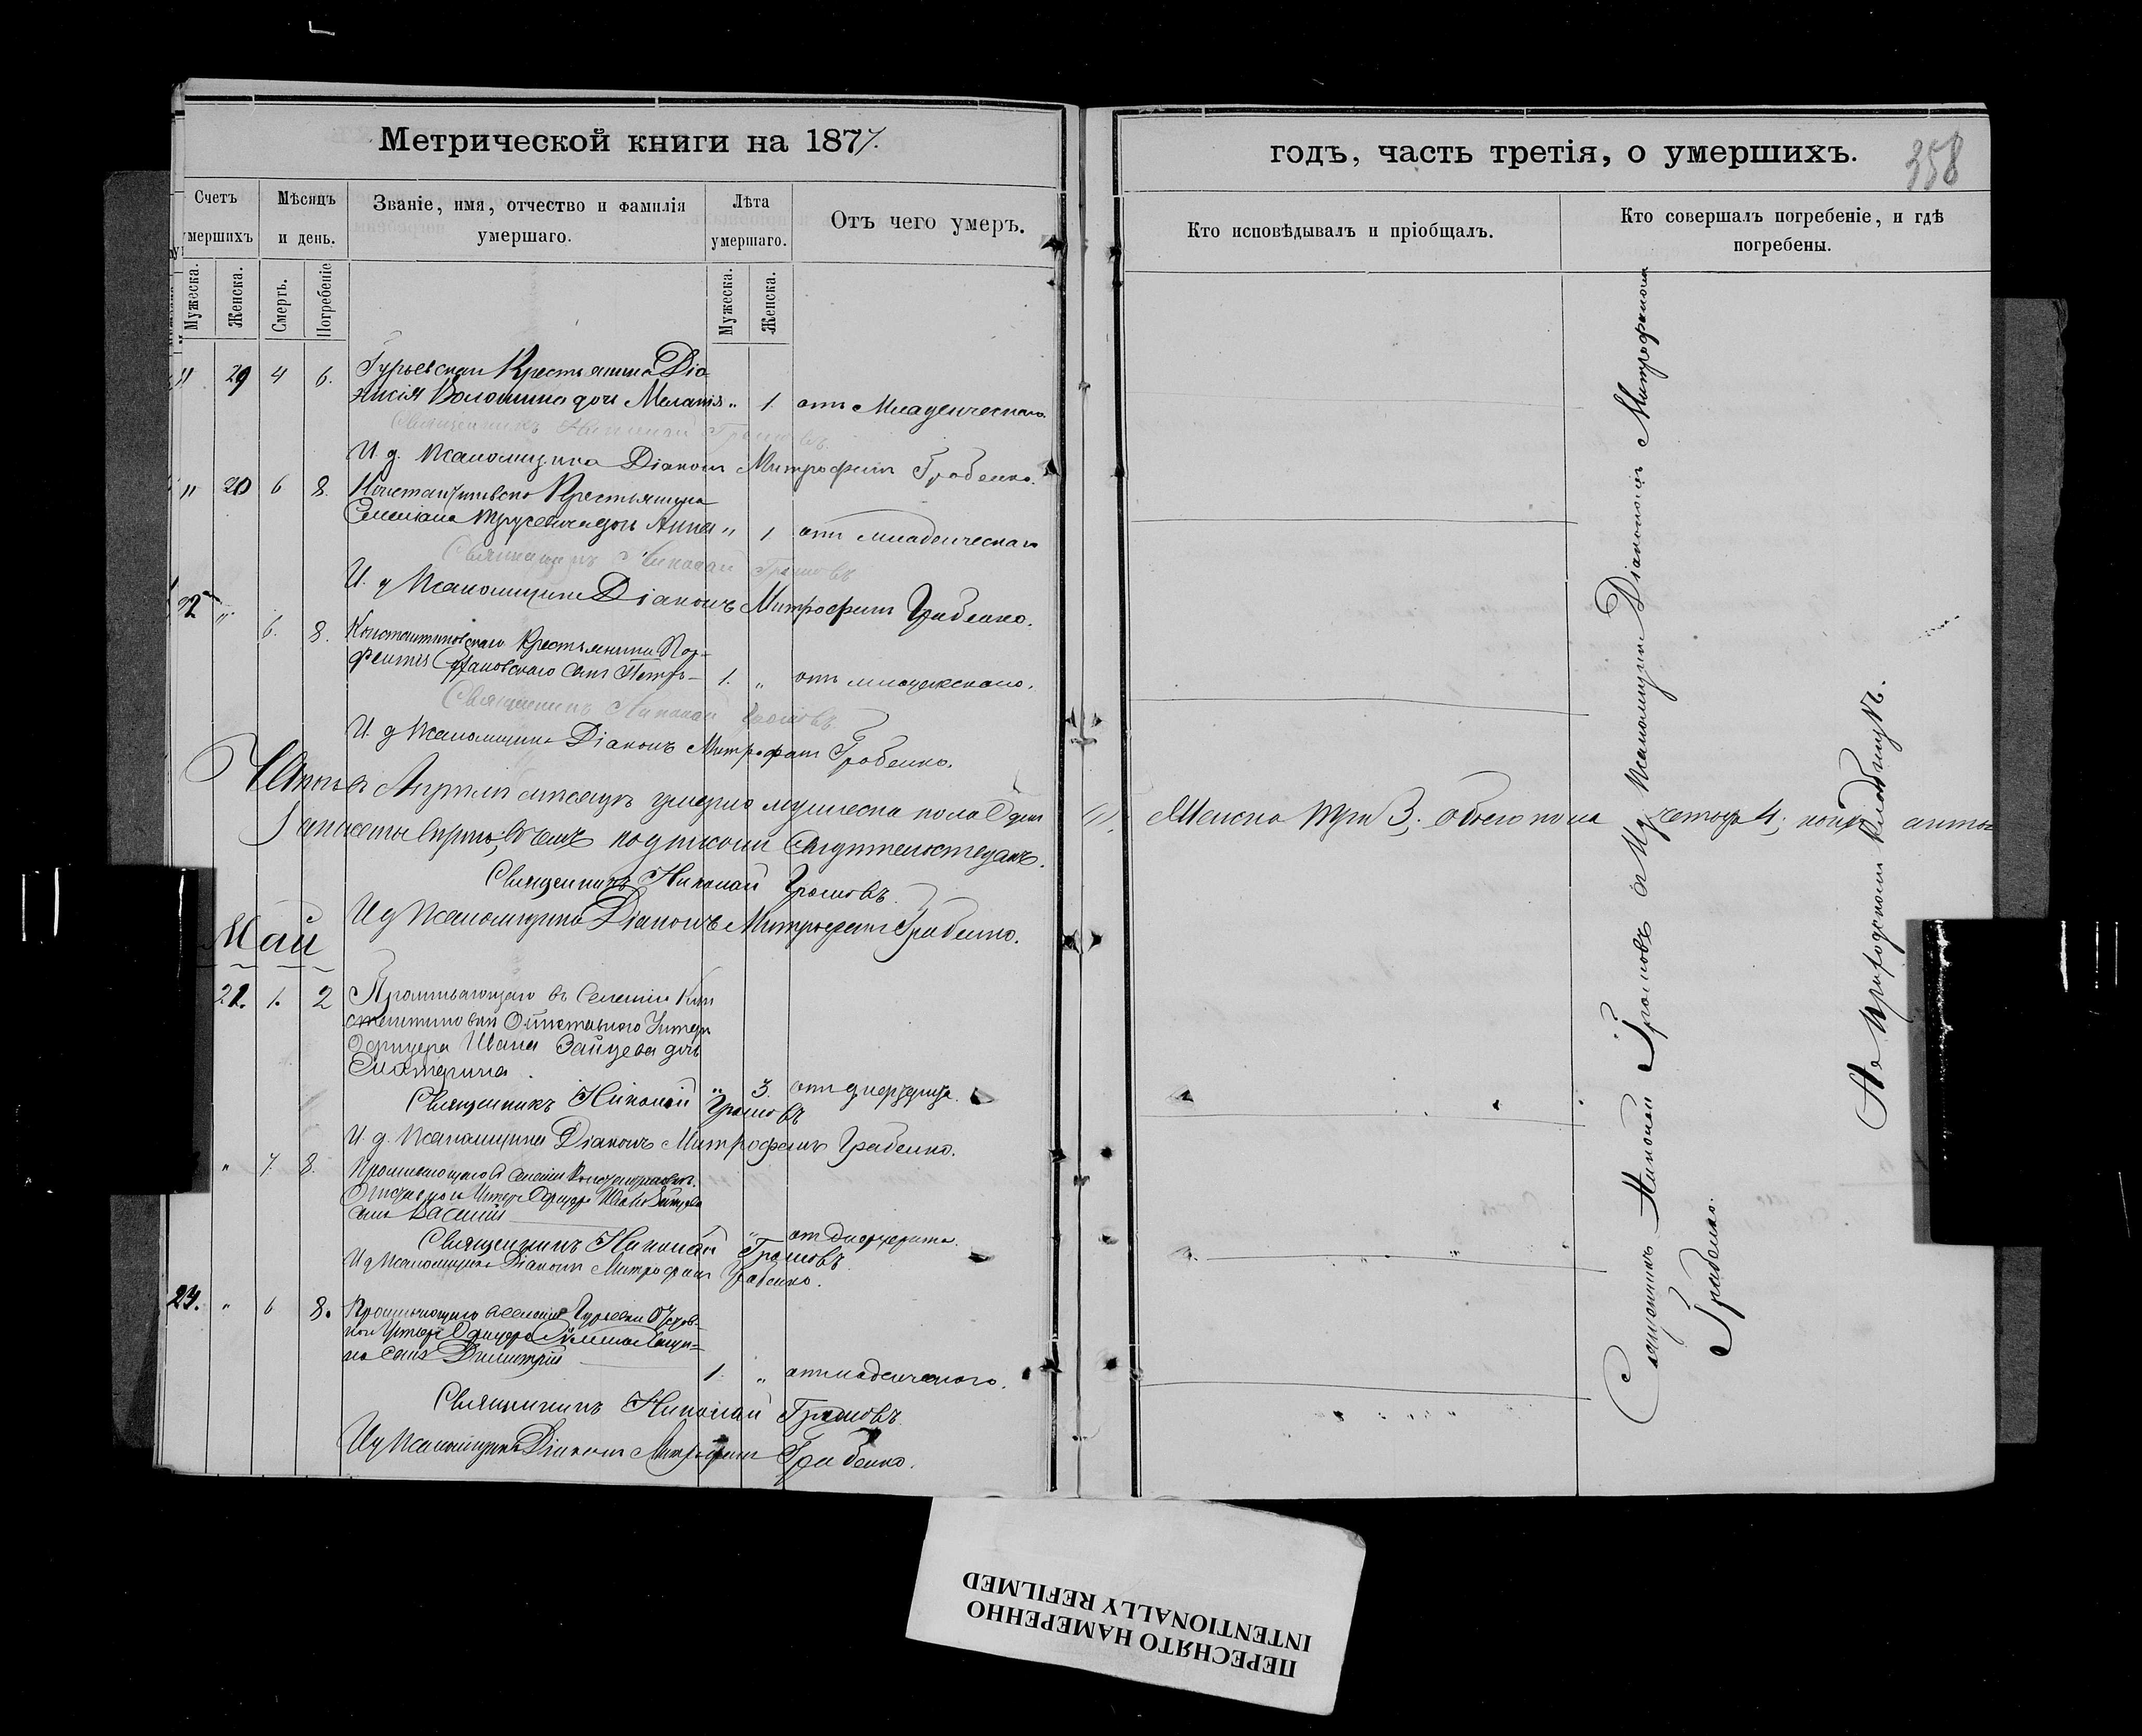 Метрической книги на 1877.
годъ, часть третія, о умершихъ.
358
Счетъ умершихъ
Мѣсяцъ и день.
Званіе, имя, отчество и фамилія умершаго.
Лѣта умершаго.
Отъ чего умеръ.
Кто исповѣдывалъ и пріобщалъ.
Кто совершалъ погребеніе, и гдѣ погребены.
Мужеска.
Женска.
Смерть.
Погребеніе
Мужеска.
Женска.
" 29 4 6. Гурьевскаго Крестьянина Діо-
нисія Волошина дочь Меланія " 1. отъ Младенческаго
Священникъ Николай Громовъ
И. д. Псаломщика Діаконъ Митрофанъ Грабенко.
" 20 6 8. Крестьянина
дочь Анна " 1 отъ младенческаго
Священникъ Николай Громовъ
И. д Псаломщика Діаконъ Митрофанъ Грабенко.
22 " 6. 8. Константиновскаго Крестьянина Пар-
фентія сынъ Петръ 1. " отъ младенческаго.
Священникъ Николай Громовъ
И. д Псаломщика Діаконъ Митрофанъ Грабенко.
Итого въ Апрѣлѣ мѣсяцѣ умерло мужеска пола Одинъ (1), Женска три 3; обоего пола четыре 4;
подписомъ
Священникъ Николай Громовъ.
И д Псаломщика Діаконъ Митрофанъ Грабенко.
Май
21. 1. 2 Проживающаго въ Селеніи Кон
стантиновки Отставного Унтеръ
Офицера Ивана Зайцева дочь
Екатерина.
" 3. отъ дифтерита.
Священникъ Николай Громовъ
И. д. Псаломщика Діаконъ Митрофанъ Грабенко.
" 7. 8. Проживающаго въ Селеніи
Унтеръ Офицера Ивана Зайцева
сынъ Василій
" отъ Дифтерита.
Священникъ Николай Громовъ
И д Псаломщика Діаконъ Митрофанъ Грабенко.
24. " 6 8. Проживающаго въ селеніи Гурьевки
Унтеръ Офицера
сынъ Димитрій
1. " отъ младенческаго.
Священникъ Николай Громовъ.
И д Псаломщика Діаконъ Митрофанъ Грабенко.
Священникъ Николай Громовъ и И д Псаломщика Діаконъ Митрофанъ
Грабенко.
На приходскомъ кладбищѣ.
ПЕРЕСНЯТО НАМЕРЕННО
INTENTIONALLY REFILMED